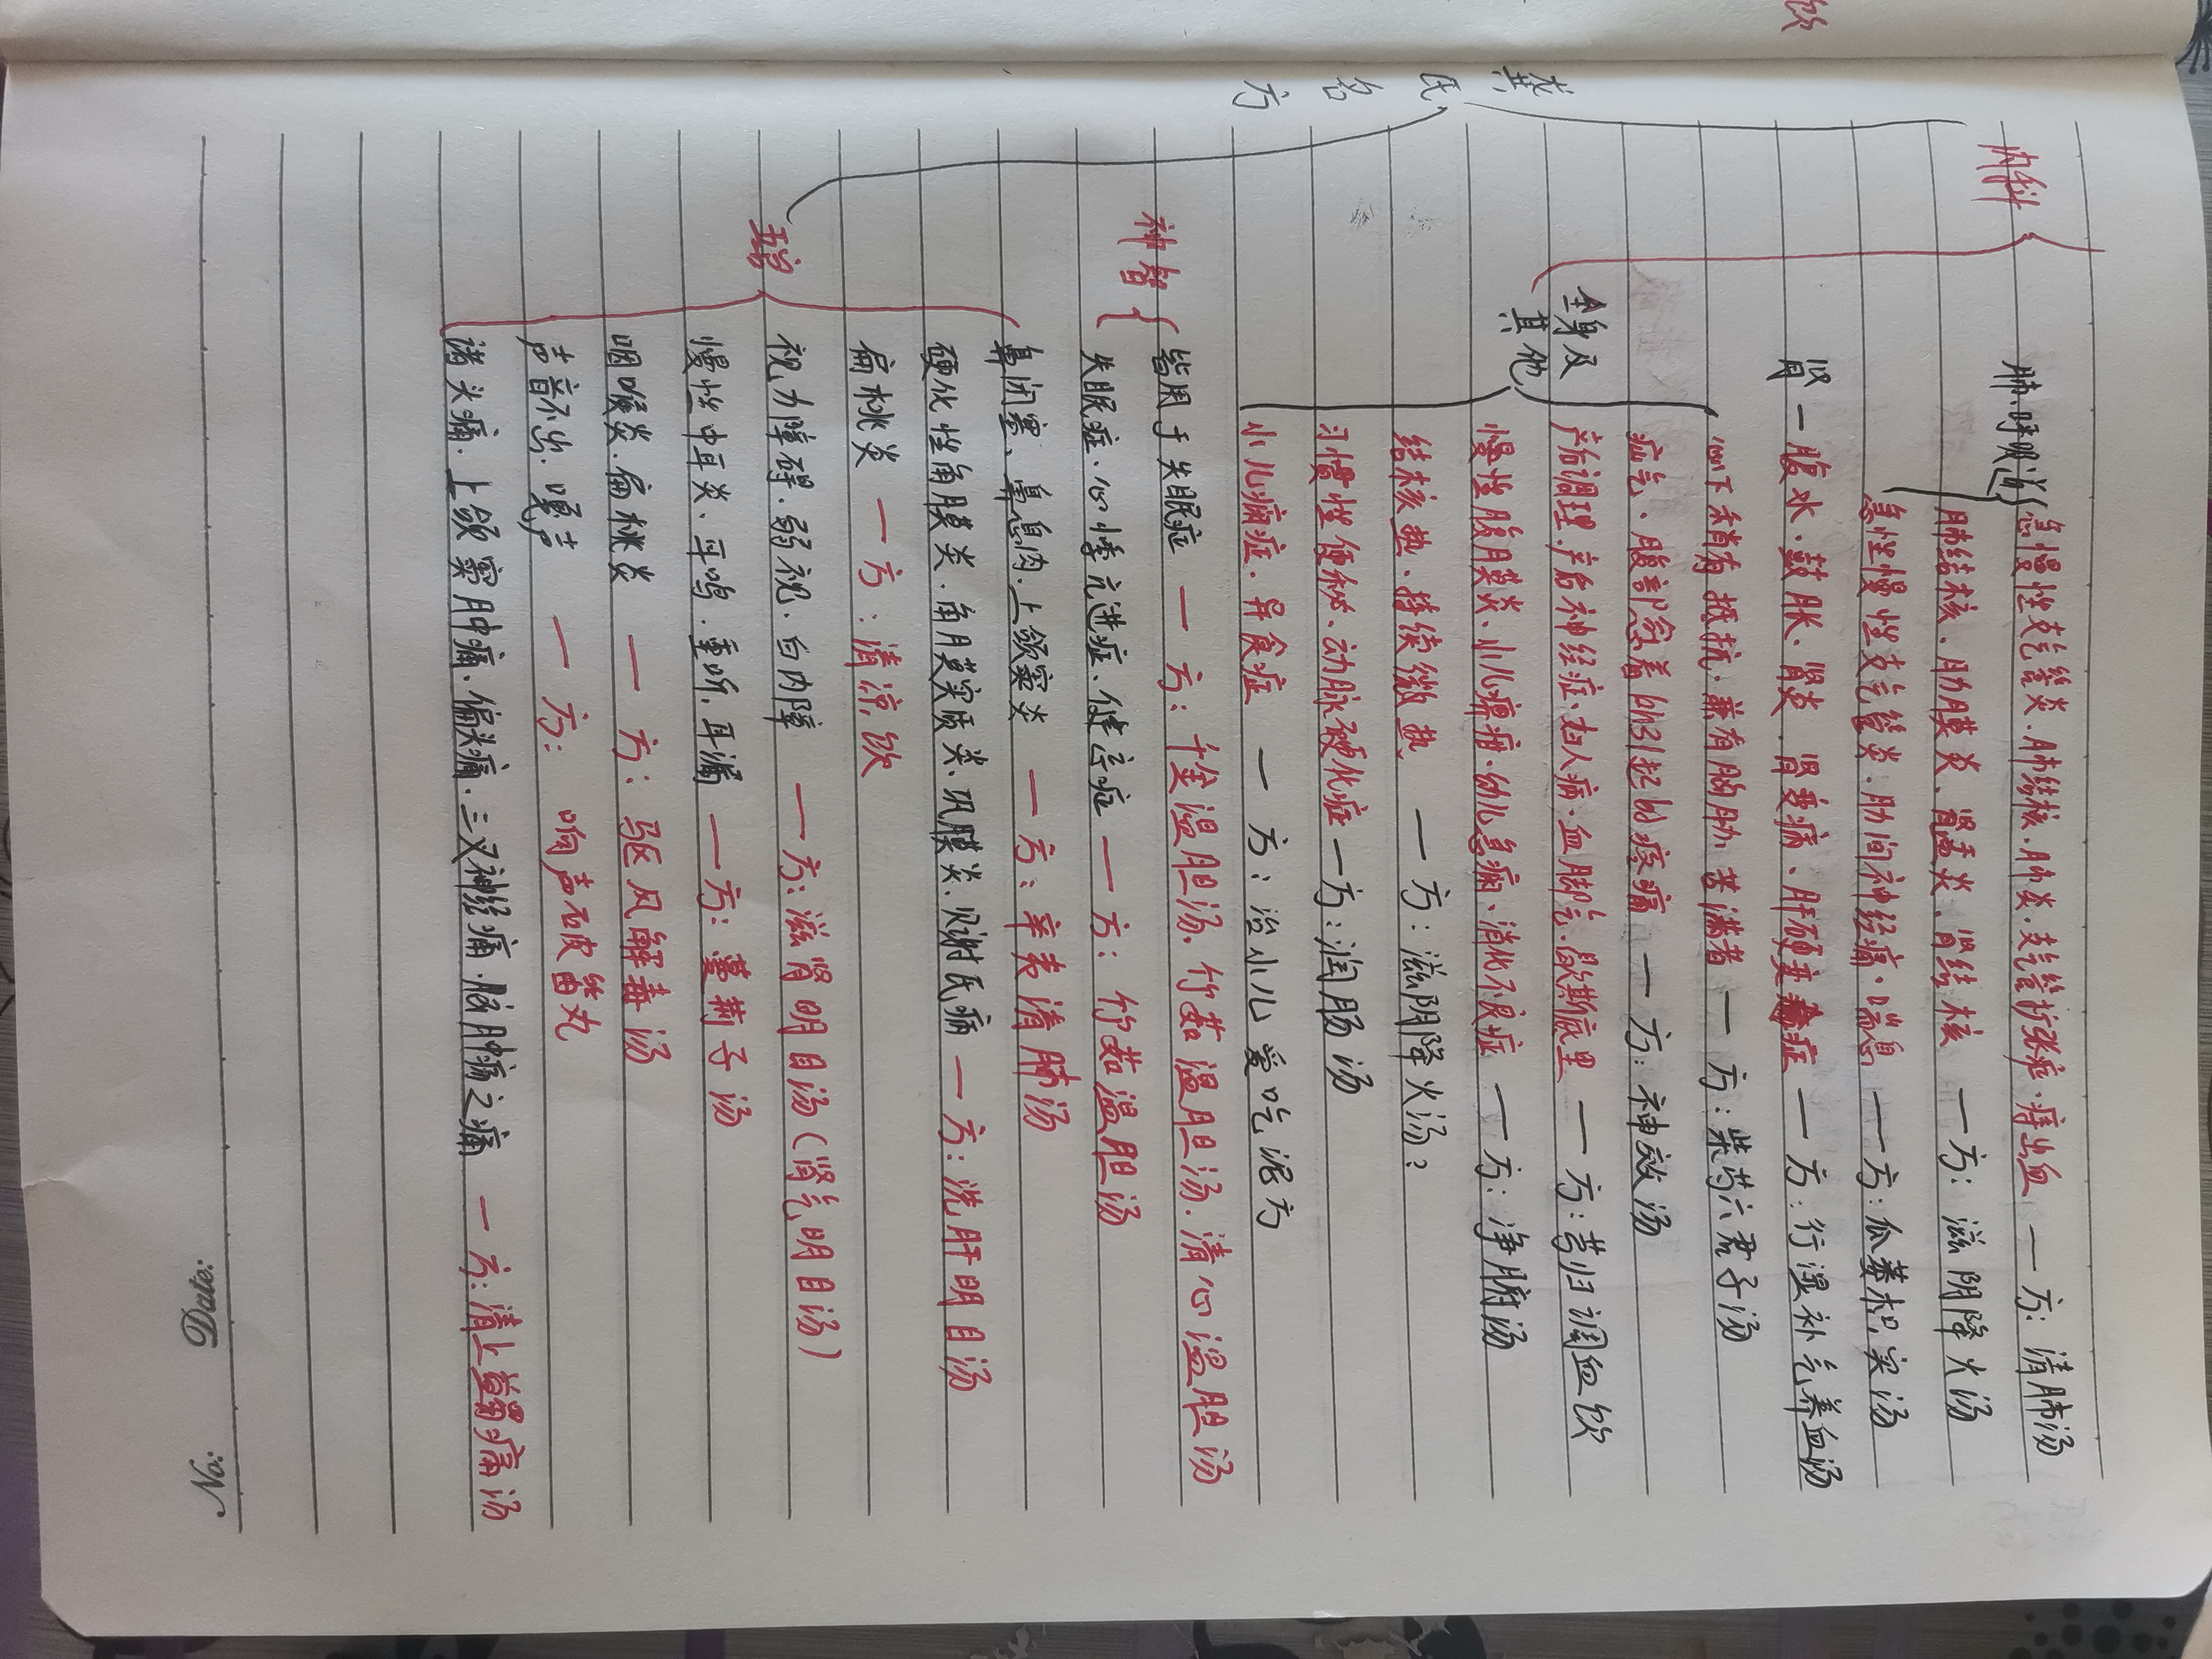 龚氏名方
内科
肺.呼吸道
急慢性支气管炎.肺结核.肺炎.支气管扩张症.痔出血 — 方：清肺汤
肺结核、肋膜炎、肾盂炎、肾结核 — 方：滋阴降火汤
急性慢性支气管炎.肋间神经痛.喘息 — 方：瓜蒌枳实汤
肾 — 腹水.鼓胀、肾炎.肾变病、肝硬变症 — 方：行湿补气养血汤
全身及其他
心下稍有抵抗.兼有胸肋苦满者 — 方：柴芍六君子汤
疝气、腹部急着的引起的疼痛 — 方：神效汤
产前调理.产后神经症.妇人病.血脚气.歇斯底里 — 方：芎归调血饮
慢性腹膜炎、小儿疳.幼儿急痫、消化不良症 — 方：净腑汤
结核热.持续微热 — 方：滋阴降火汤？
习惯性便秘.动脉硬化症 — 方：润肠汤
小儿痫症.异食症 — 方：治小儿爱吃泥方
神智
皆用于失眠症 — 方：千金温胆汤.竹茹温胆汤.清心温胆汤
失眠症.心悸亢进症、健忘症 — 方：竹茹温胆汤
五官
鼻闭塞、鼻息肉.上颌窦炎 — 方：辛夷清肺汤
硬化性角膜炎.角膜实质炎、巩膜炎.贝谢氏病 — 方：洗肝明目汤
扁桃炎 — 方：清凉饮
视力障碍.弱视.白内障 — 方：滋肾明目汤（肾气明目汤）
慢性中耳炎、耳鸣.重听.耳漏 — 方：蔓荆子汤
咽喉炎.扁桃炎 — 方：驱风解毒汤
声音不出.嗄声 — 方：响声破笛丸
诸头痛.上颌窦肿痛、偏头痛.三叉神经痛.脑肿疡之痛 — 方：清上蠲痛汤
Date:
No:
饮